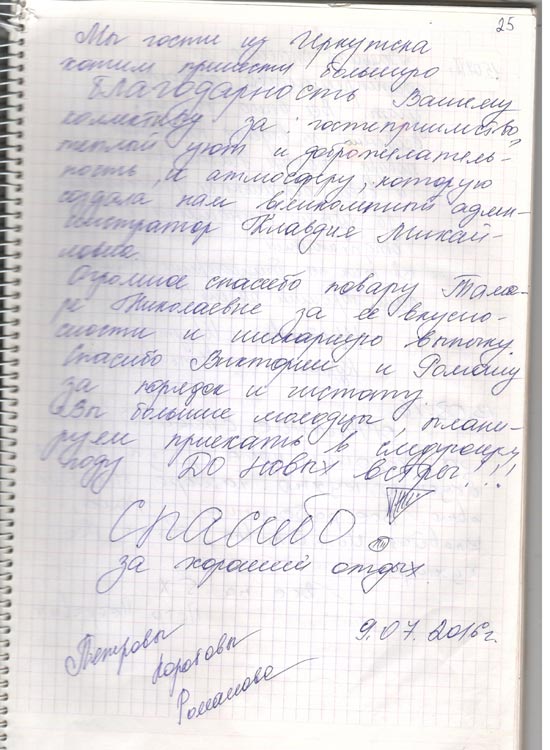 25
Мы гости из Иркутска
хотим принести большую
Благодарность Вашему
коллективу за гостеприимство,
теплый уют и доброжелатель-
ность, и атмосферу, которую
создала нам великолепный адми-
нистратор Клавдия Михай-
ловна.
Огромное спасибо повару Тама-
ре Николаевне за ее вкусно-
сности и шикарную выпечку
Спасибо Виктории и Роману
за порядок и чистоту.
Вы большие молодцы, плани-
руем приехать в следующем
году До новых встреч!!!
Спасибо
за хороший отдых
9.07.2016г.
Петровы
Коротовы
Романова